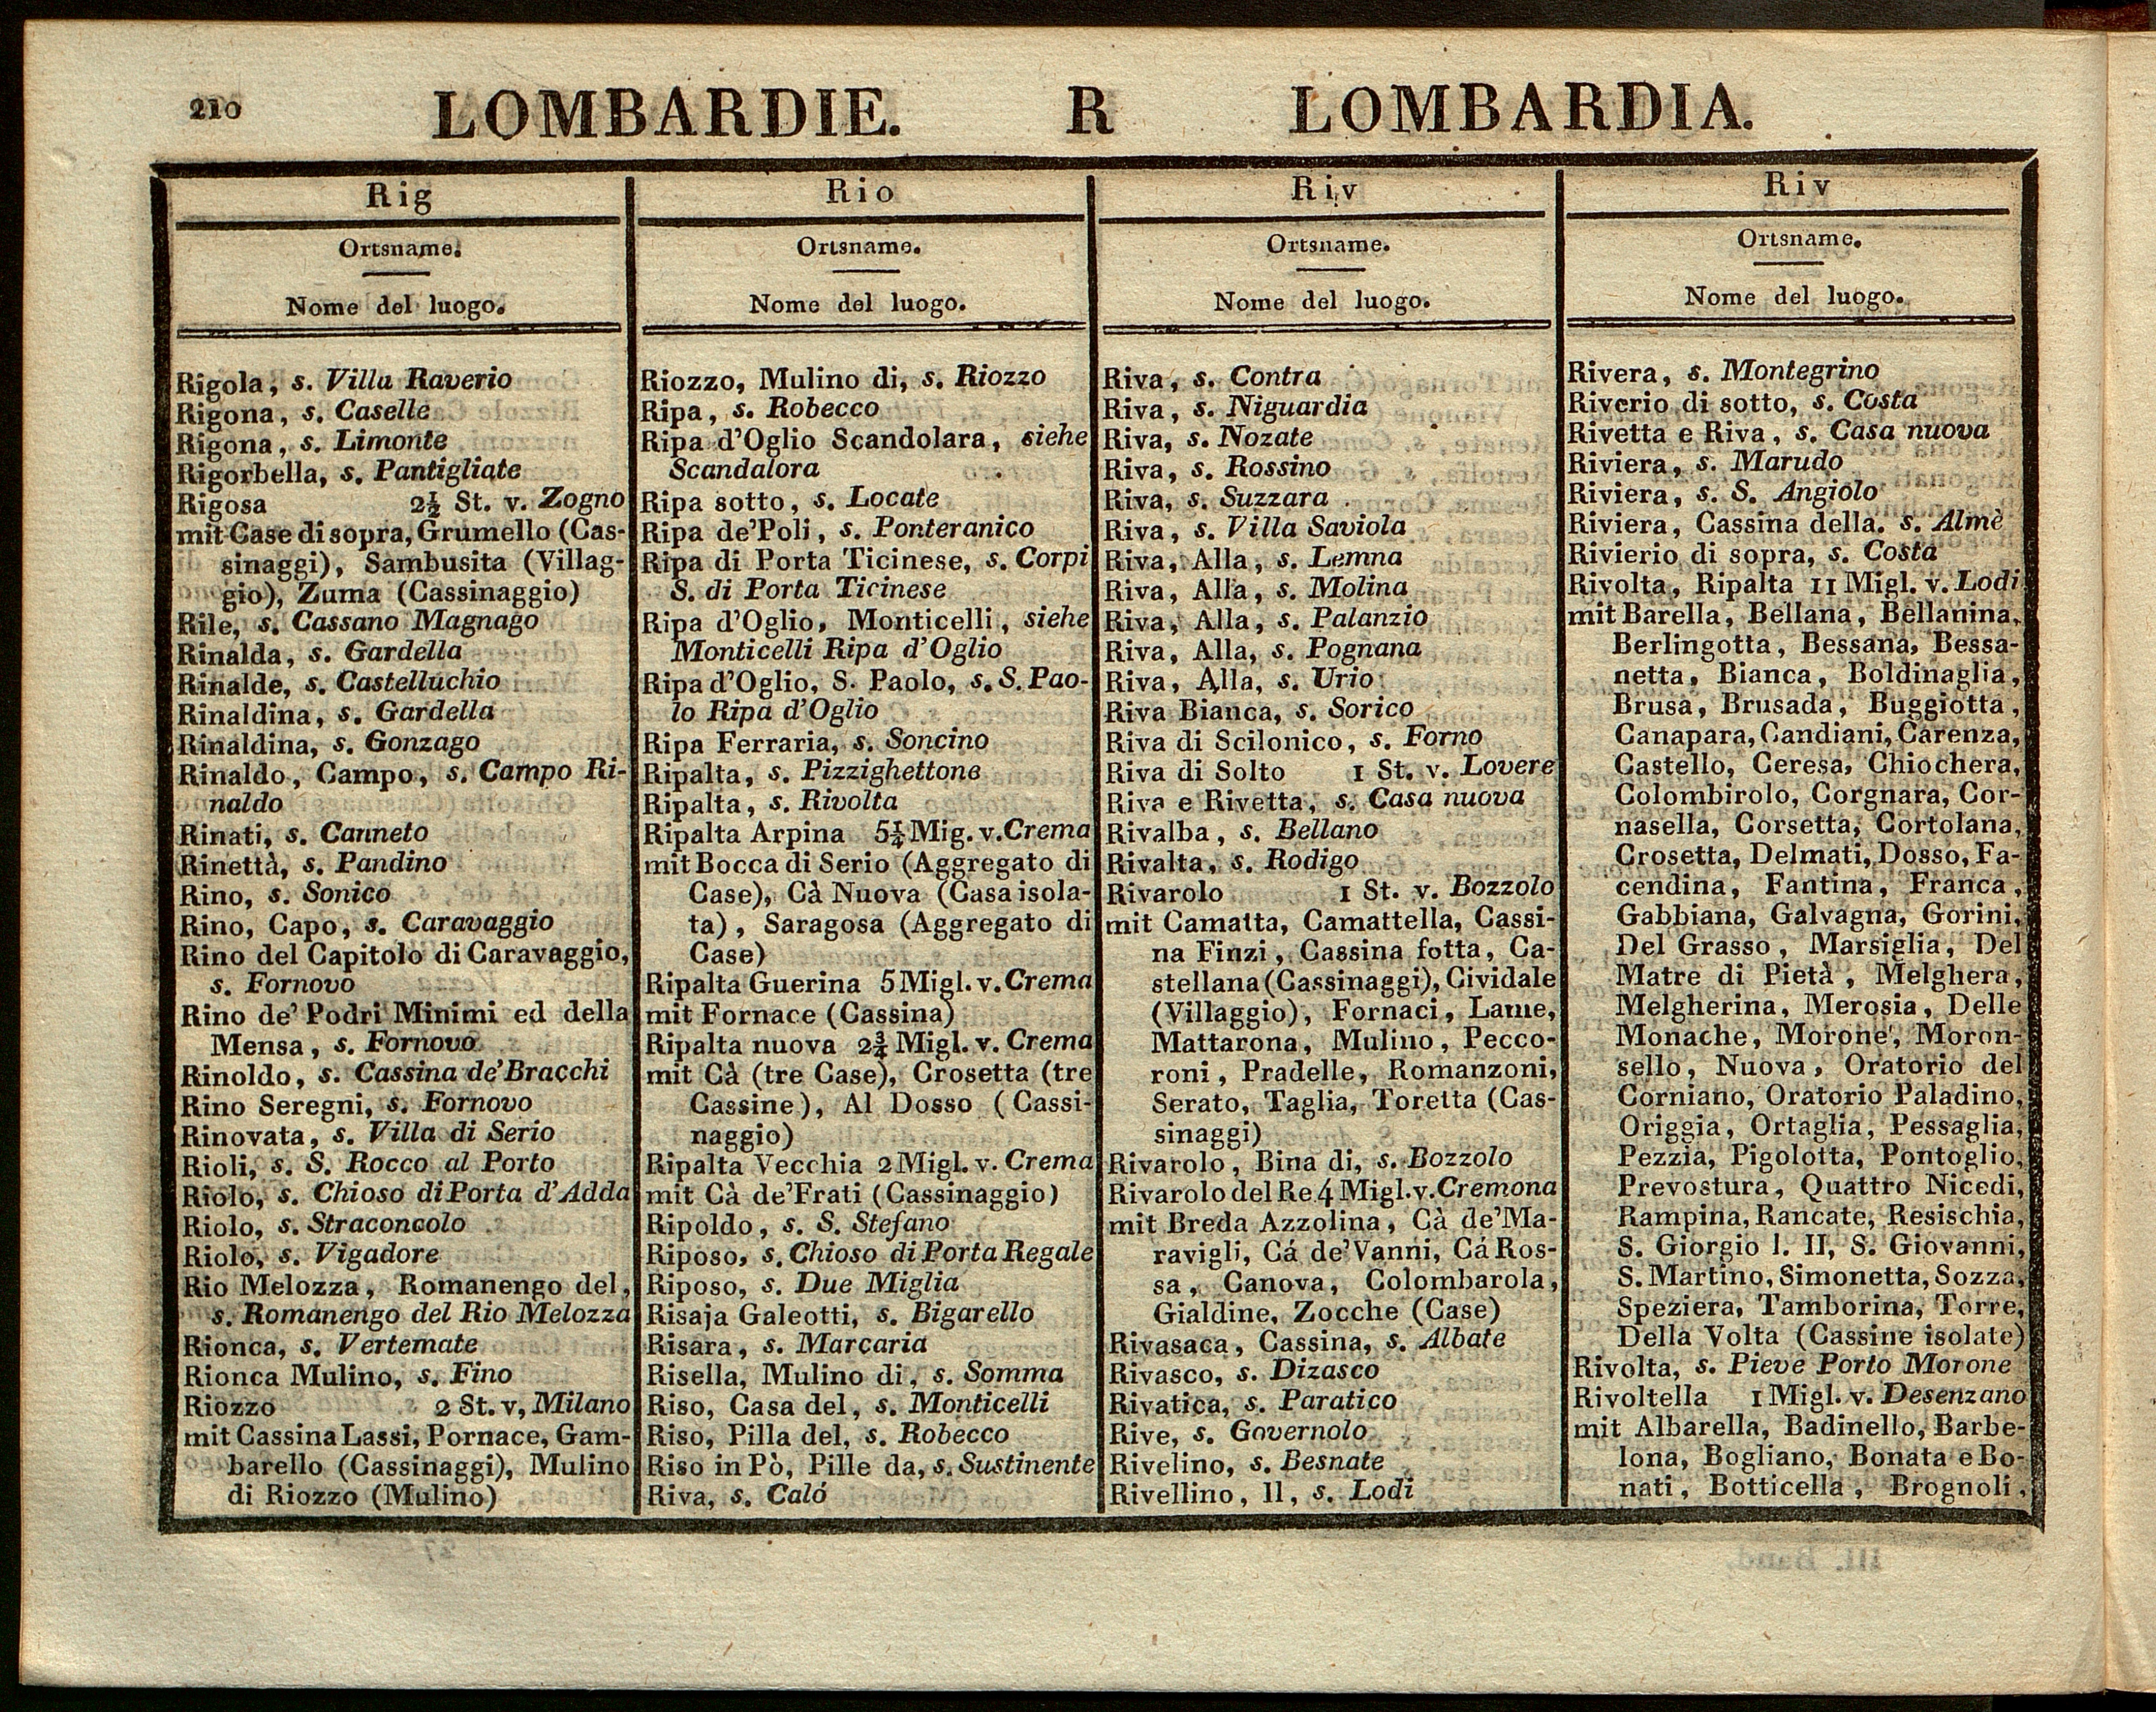 210
LOMBARDIE. R LOMBARDIA.
Rig
Ortsname.
Nome del luogo.
Rigola, s. Villa Raverio
Rigona, s. Caselle
Rigona, s. Limonte
Rigorbella, s. Pantigliate
Rigosa 2½ St. v. Zogno
mit Case di sopra, Grumello (Cas-
sinaggi), Sambusita (Villag-
gio), Zuma (Cassinaggio)
Rile, s. Cassano Magnago
Rinalda, s. Gardella
Rinalde, s. Castelluchio
Rinaldina, s. Gardella
Rinaldina, s. Gonzago
Rinaldo, Campo, s. Campo Ri-
naldo
Rinati, s. Canneto
Rinettà, s. Pandino
Rino, s. Sonico
Rino, Capo, s. Caravaggio
Rino del Capitolo di Caravaggio,
s. Fornovo
Rino de' Podri Minimi ed della
Mensa, s. Fornovo
Rinoldo, s. Cassina de' Bracchi
Rino Seregni, s. Fornovo
Rinovata, s. Villa di Serio
Rioli, s. S. Rocco al Porto
Riolo, s. Chioso di Porta d'Adda
Riolo, s. Straconcolo
Riolo, s. Vigadore
Rio Melozza, Romanengo del,
s. Romanengo del Rio Melozza
Rionca, s. Vertemate
Rionca Mulino, s. Fino
Riozzo 2 St. v, Milano
mit Cassina Lassi, Pornace, Gam-
barello (Cassinaggi), Mulino
di Riozzo (Mulino)
Rio
Ortsname.
Nome del luogo.
Riozzo, Mulino di, s. Riozzo
Ripa, s. Robecco
Ripa d'Oglio Scandolara, siehe
Scandalora
Ripa sotto, s. Locate
Ripa de'Poli, s. Ponteranico
Ripa di Porta Ticinese, s. Corpi
S. di Porta Ticinese
Ripa d'Oglio, Monticelli, siehe
Monticelli Ripa d'Oglio
Ripa d'Oglio, S. Paolo, s. S. Pao-
lo Ripa d'Oglio
Ripa Ferraria, s. Soncino
Ripalta, s. Pizzighettone
Ripalta, s. Rivolta
Ripalta Arpina 5¼ Mig. v. Crema
mit Bocca di Serio (Aggregato di
Case), Cà Nuova (Casa isola-
ta), Saragosa (Aggregato di
Case)
Ripalta Guerina 5 Migl. v. Crema
mit Fornace (Cassina)
Ripalta nuova 2¾ Migl. v. Crema
mit Cà (tre Case), Crosetta (tre
Cassine), Al Dosso (Cassi-
naggio)
Ripalta Vecchia 2 Migl. v. Crema
mit Cà de'Frati (Cassinaggio)
Ripoldo, s. S. Stefano
Riposo, s. Chioso di Porta Regale
Riposo, s. Due Miglia
Risaja Galeotti, s. Bigarello
Risara, s. Marcaria
Risella, Mulino di, s. Somma
Riso, Casa del, s. Monticelli
Riso, Pilla del, s. Robecco
Riso in Pò, Pille da, s. Sustinente
Riva, s. Caló
Riv
Ortsname.
Nome del luogo.
Riva, s. Contra
Riva, s. Niguardia
Riva, s. Nozate
Riva, s. Rossino
Riva, s. Suzzara
Riva, s. Villa Saviola
Riva, Alla, s. Lemna
Riva, Alla, s. Molina
Riva, Alla, s. Palanzio
Riva, Alla, s. Pognana
Riva, Alla, s. Urio
Riva Bianca, s. Sorico
Riva di Scilonico, s. Forno
Riva di Solto 1 St. v. Lovere
Riva e Rivetta, s. Casa nuova
Rivalba, s. Bellano
Rivalta, s. Rodigo
Rivarolo 1 St. v. Bozzolo
mit Camatta, Camattella, Cassi-
na Finzi, Cassina fotta, Ca-
stellana (Cassinaggi), Cividale
(Villaggio), Fornaci, Lame,
Mattarona, Mulino, Pecco-
roni, Pradelle, Romanzoni,
Serato, Taglia, Toretta (Cas-
sinaggi)
Rivarolo, Bina di, s. Bozzolo
Rivarolo del Re 4 Migl. v. Cremona
mit Breda Azzolina, Cà de'Ma-
ravigli, Cá de'Vanni, Cá Ros-
sa, Canova, Colombarola,
Gialdine, Zocche (Case)
Rivasaca, Cassina, s. Albate
Rivasco, s. Dizasco
Rivatica, s. Paratico
Rive, s. Governolo
Rivelino, s. Besnate
Rivellino, Il, s. Lodi
Riv
Ortsname.
Nome del luogo.
Rivera, s. Montegrino
Riverio di sotto, s. Costa
Rivetta e Riva, s. Casa nuova
Riviera, s. Marudo
Riviera, s. S. Angiolo
Riviera, Cassina della. s. Almè
Rivierio di sopra, s. Costa
Rivolta, Ripalta 11 Migl. v. Lodi
mit Barella, Bellana, Bellanina,
Berlingotta, Bessana, Bessa-
netta, Bianca, Boldinaglia,
Brusa, Brusada, Buggiotta,
Canapara, Candiani, Carenza,
Castello, Ceresa, Chiochera,
Colombirolo, Corgnara, Cor-
nasella, Corsetta, Cortolana,
Crosetta, Delmati, Dosso, Fa-
cendina, Fantina, Franca,
Gabbiana, Galvagna, Gorini,
Del Grasso, Marsiglia, Del
Matre di Pietà, Melghera,
Melgherina, Merosia, Delle
Monache, Morone, Moron-
sello, Nuova, Oratorio del
Corniano, Oratorio Paladino,
Origgia, Ortaglia, Pessaglia,
Pezzia, Pigolotta, Pontoglio,
Prevostura, Quattro Nicedi,
Rampina, Rancate, Resischia,
S. Giorgio l. II, S. Giovanni,
S. Martino, Simonetta, Sozza,
Speziera, Tamborina, Torre,
Della Volta (Cassine isolate)
Rivolta, s. Pieve Porto Morone
Rivoltella 1 Migl. v. Desenzano
mit Albarella, Badinello, Barbe-
lona, Bogliano, Bonata e Bo-
nati, Botticella, Brognoli,